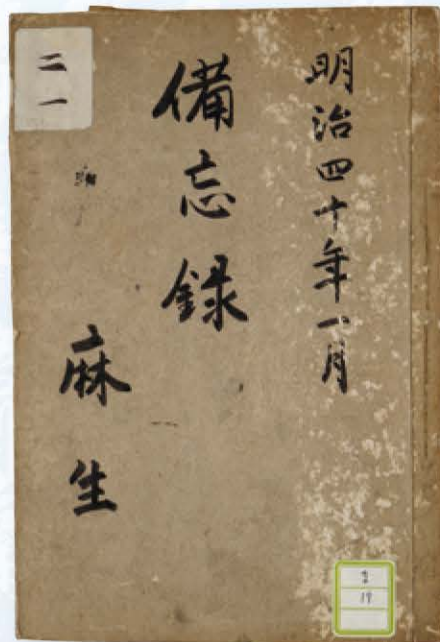 明治四十年一月
備忘録
麻生
二一
19